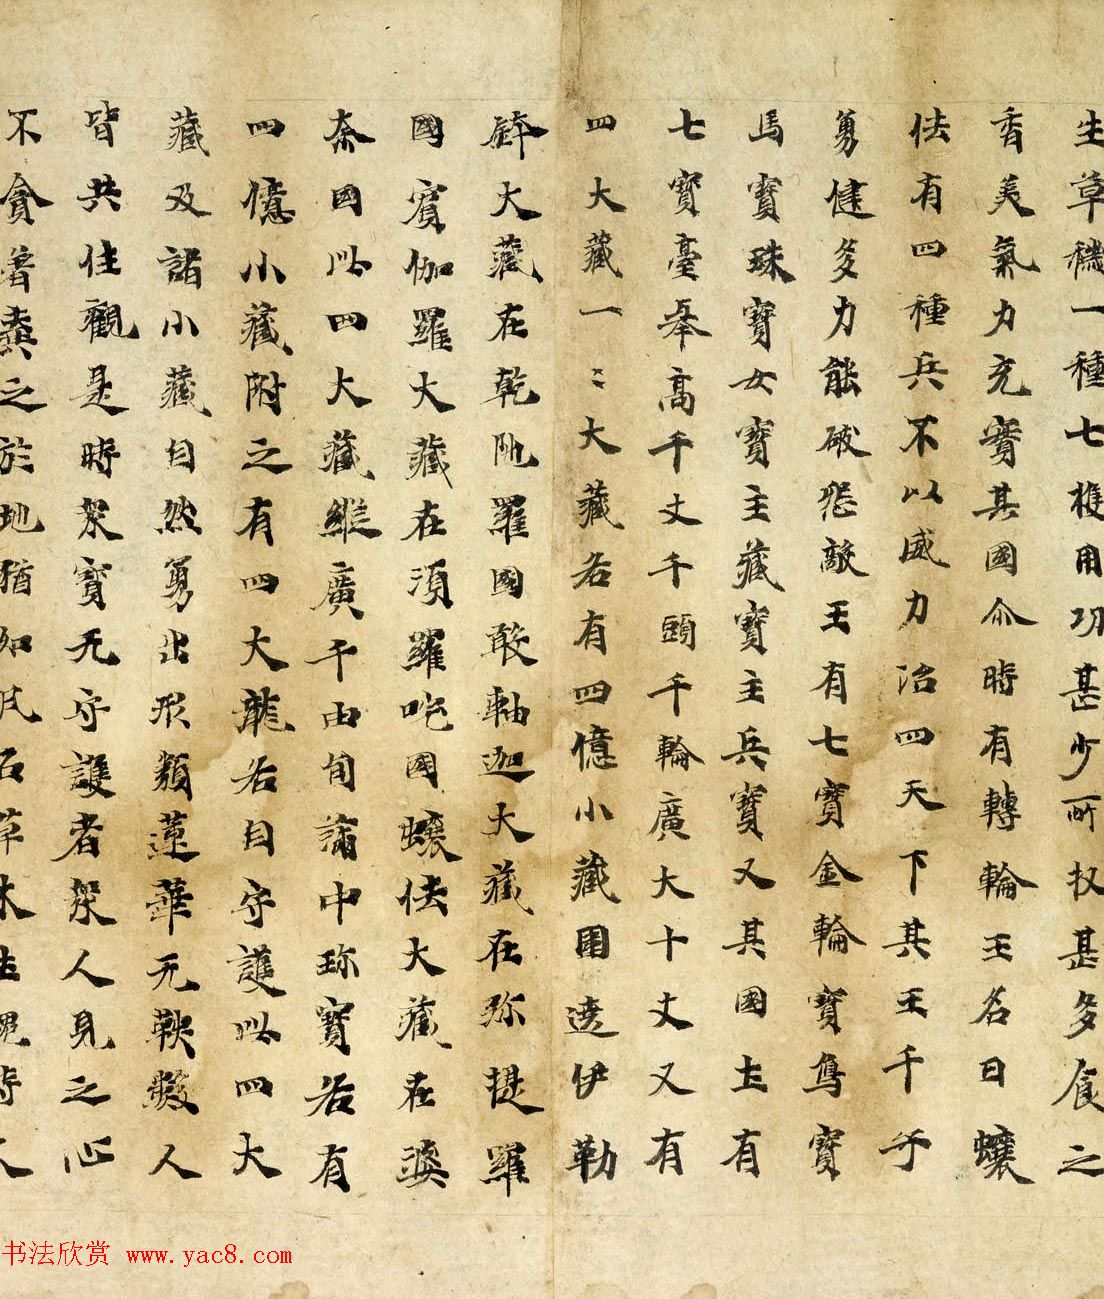 生草穢一種七穫用功甚少所收甚多食之
香美氣力充實其國尒時有轉輪王名曰蠰
佉有四種兵不以威力治四天下其王千子
勇健多力能破怨敵王有七寶金輪寶象寶
馬寶珠寶女寶主藏寶主兵寶又其國土有
七寶臺舉高千丈千頭千輪廣大十丈又有
四大藏一〻大藏各有四億小藏圍遶伊勒
鉢大藏在乾陁羅國般軸迦大藏在弥提羅
國賓伽羅大藏在須羅吒國蠰佉大藏在婆
柰國此四大藏縱廣千由旬滿中珎寶各有
四億小藏附之有四大龍各自守護此四大
藏及諸小藏自然勇出形類蓮華无鞅數人
皆共住觀是時衆寶无守護者衆人見之心
不貪著棄之於地猶如瓦石草木土塊時人
书法欣赏 www.yac8.com